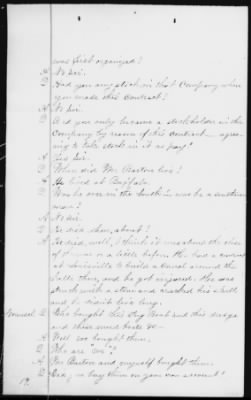 was first organized?
A No sir.
Q Had you any stock in that Company when
you made this contract?
A No sir.
Q Did you only become a stockholder in the
Company by reason of this contract agree-
ing to take stock in it as pay?
A Yes Sir.
Q When did Mr. Barton live?
A He lived at Buffalo.
Q Was he over in the South in was he a southern
man?
A No sir
Q He died there, about?
A He died, well, I think it was about the close
of the war or a little before. He had a contract
at Louisville to build a canal around the
Falls there, and he got injured. He was
struck with a stone and crushed his skull
and he didn't live long.
Q Who bought this Dry Boat and this dredge
and these mud boats
A Well we bought them.
Q Who are "we"?
A Mr Barton and myself bought them.
Q Did you buy them on your own account?